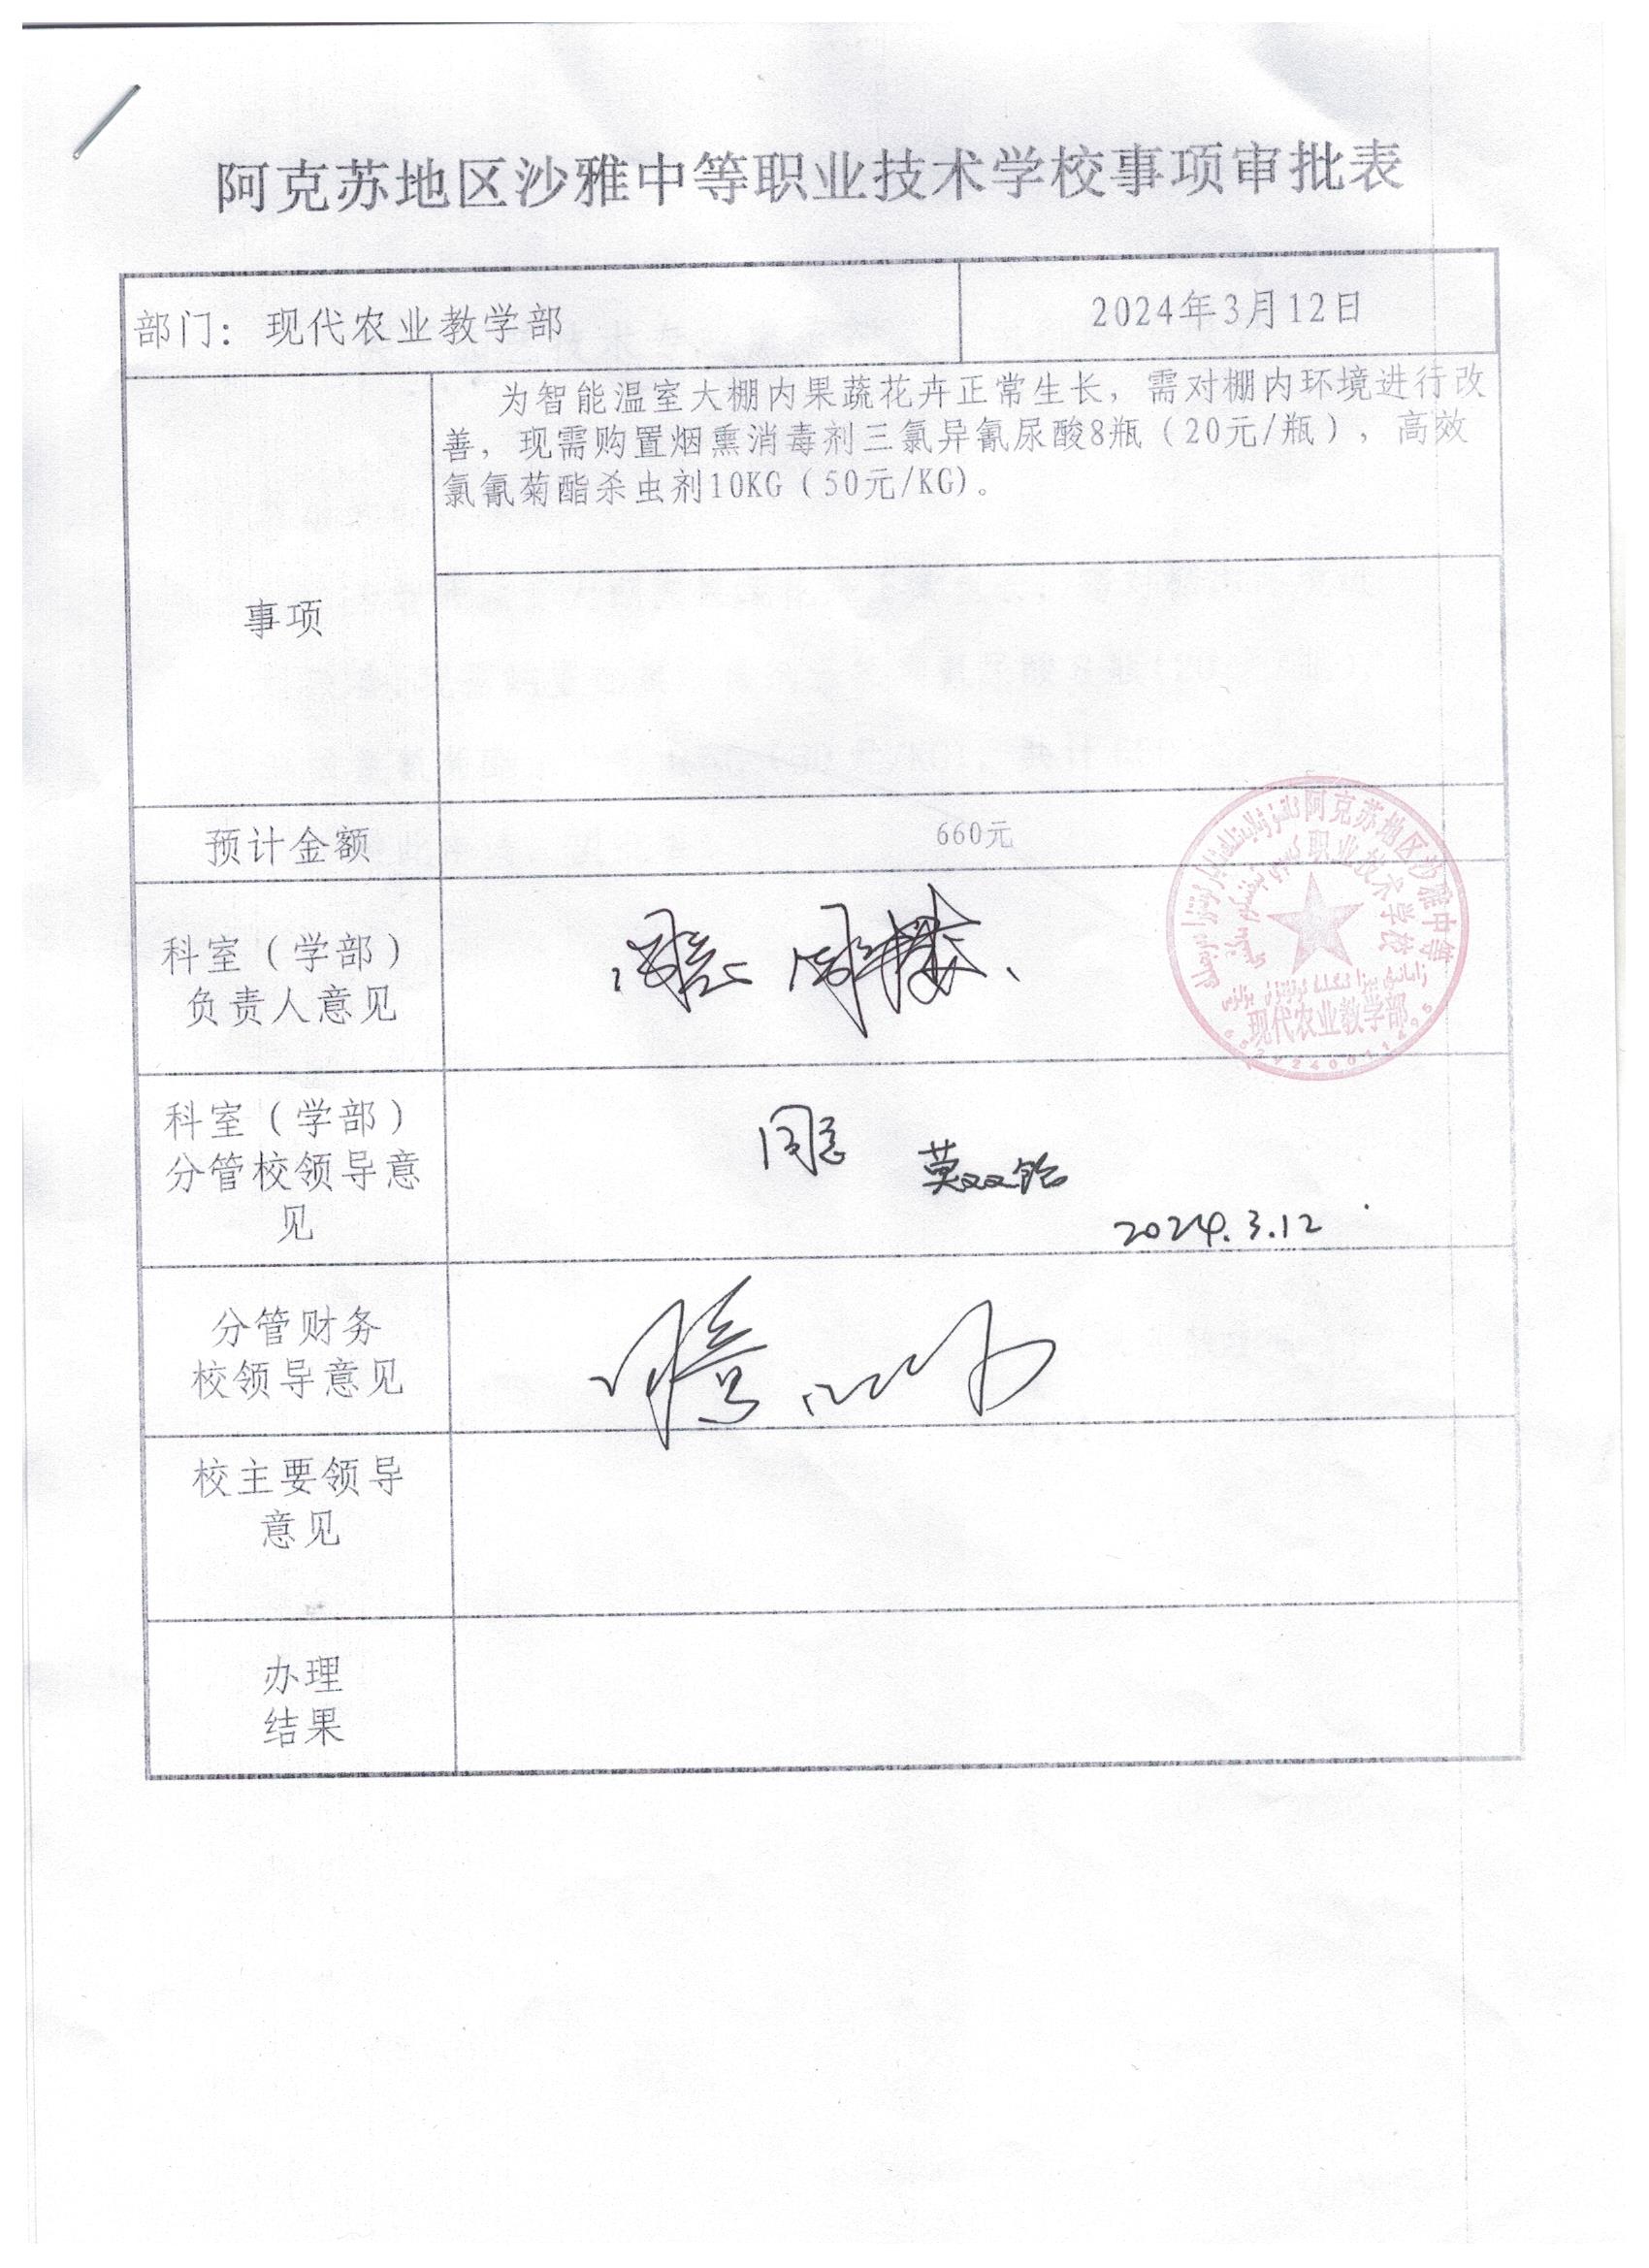 阿克苏地区沙雅中等职业技术学校事项审批表
部门：现代农业教学部
2024年3月12日
事项
为智能温室大棚内果蔬花卉正常生长，需对棚内环境进行改
善，现需购置烟熏消毒剂三氯异氰尿酸8瓶（20元/瓶），高效
氯氰菊酯杀虫剂10KG（50元/KG）。
预计金额
660元
阿克苏地区沙雅中等
职业技术学校
现代农业教学部
科室（学部）
负责人意见
同意
科室（学部）
分管校领导意
见
同意
莫双
2024.3.12
分管财务
校领导意见
同意
校主要领导
意见
办理
结果